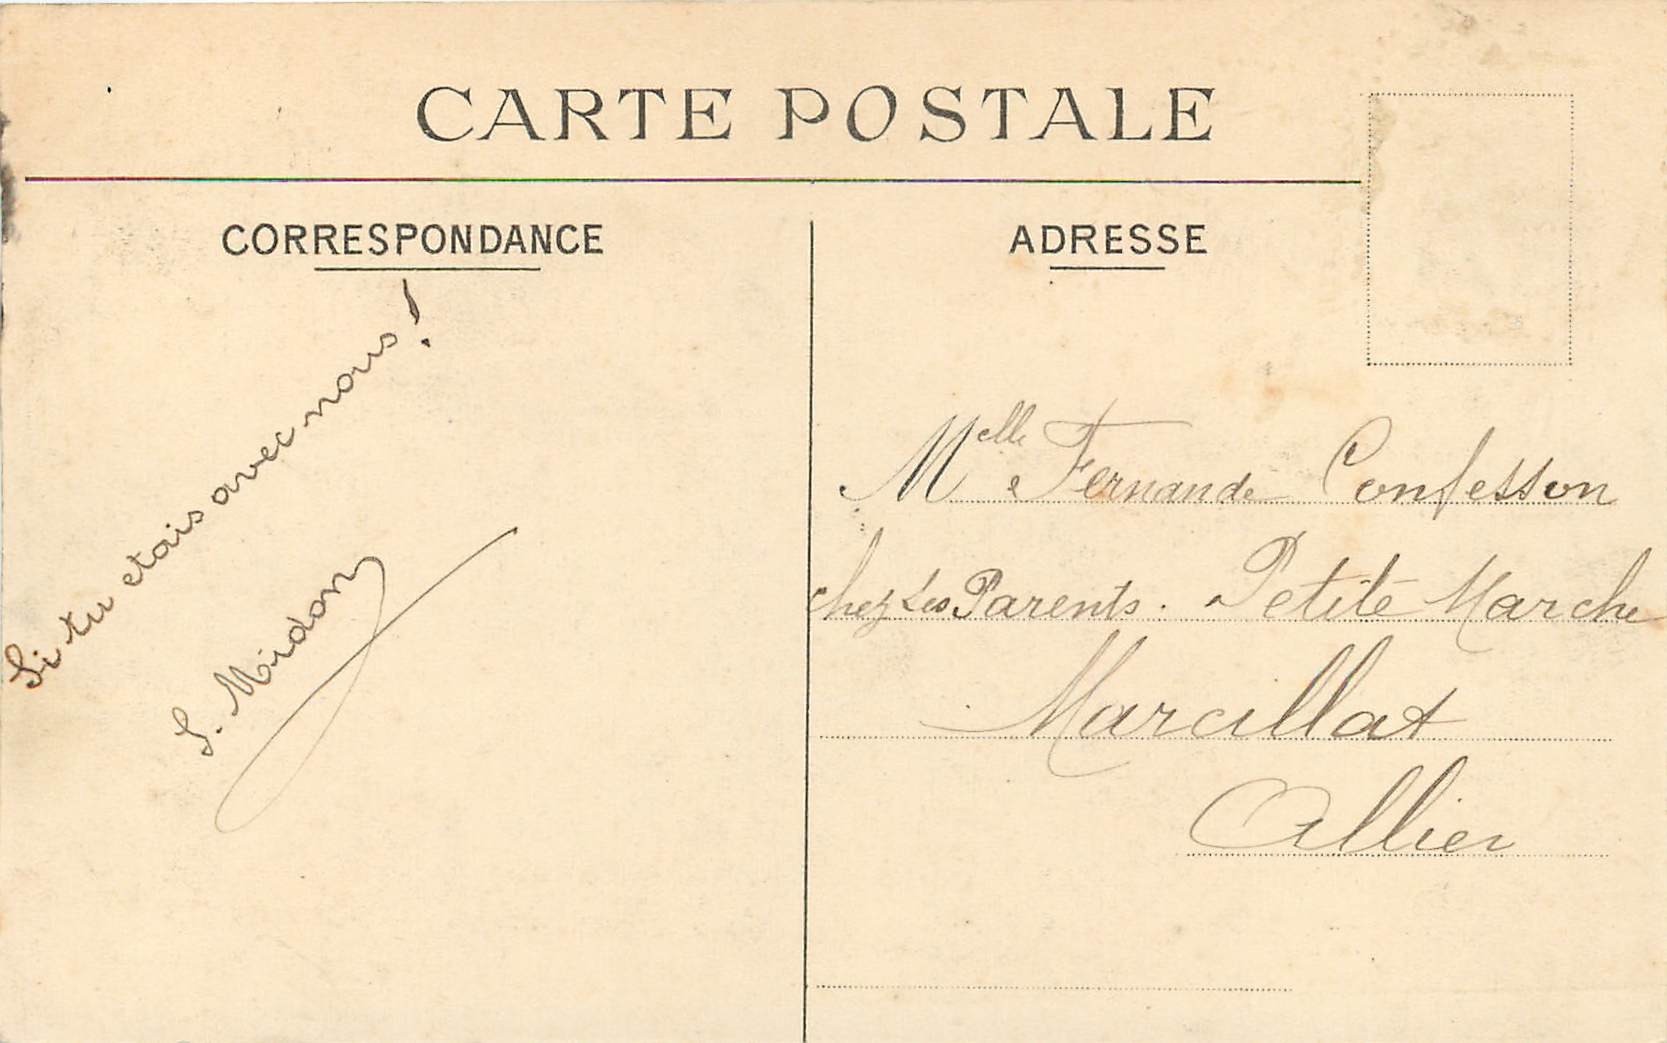 CARTE POSTALE
CORRESPONDANCE
Si tu etais avec nous !
S. Midon
ADRESSE
Melle Fernande Confesson
chez Ses Parents. Petite Marche
Marcillat
Allier